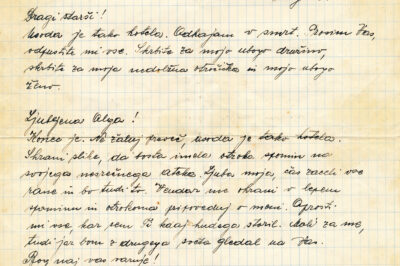 Dragi starši!
Usoda je tako hotela. Odhajam v smrt. Prosim Vas,
odpustite mi vse. Skrbite za mojo ubogo družino,
skrbite za moja nedolžna otročička in mojo ubogo
ženo.
Ljubljena Olga!
Konec je. Ne žaluj preveč, usoda je tako hotela.
Shrani slike, da bosta imela otroka spomin na
svojega nesrečnega ateka. Ljuba moja, čas zaceli vse
rane in bo tudi to. Vendar me ohrani v lepem
spominu in otrokoma pripoveduj o meni. Oprosti
mi vse kar sem Ti kdaj hudega storil. Moli za me,
tudi jaz bom z drugega sveta gledal na Vas.
Bog naj vas varuje!